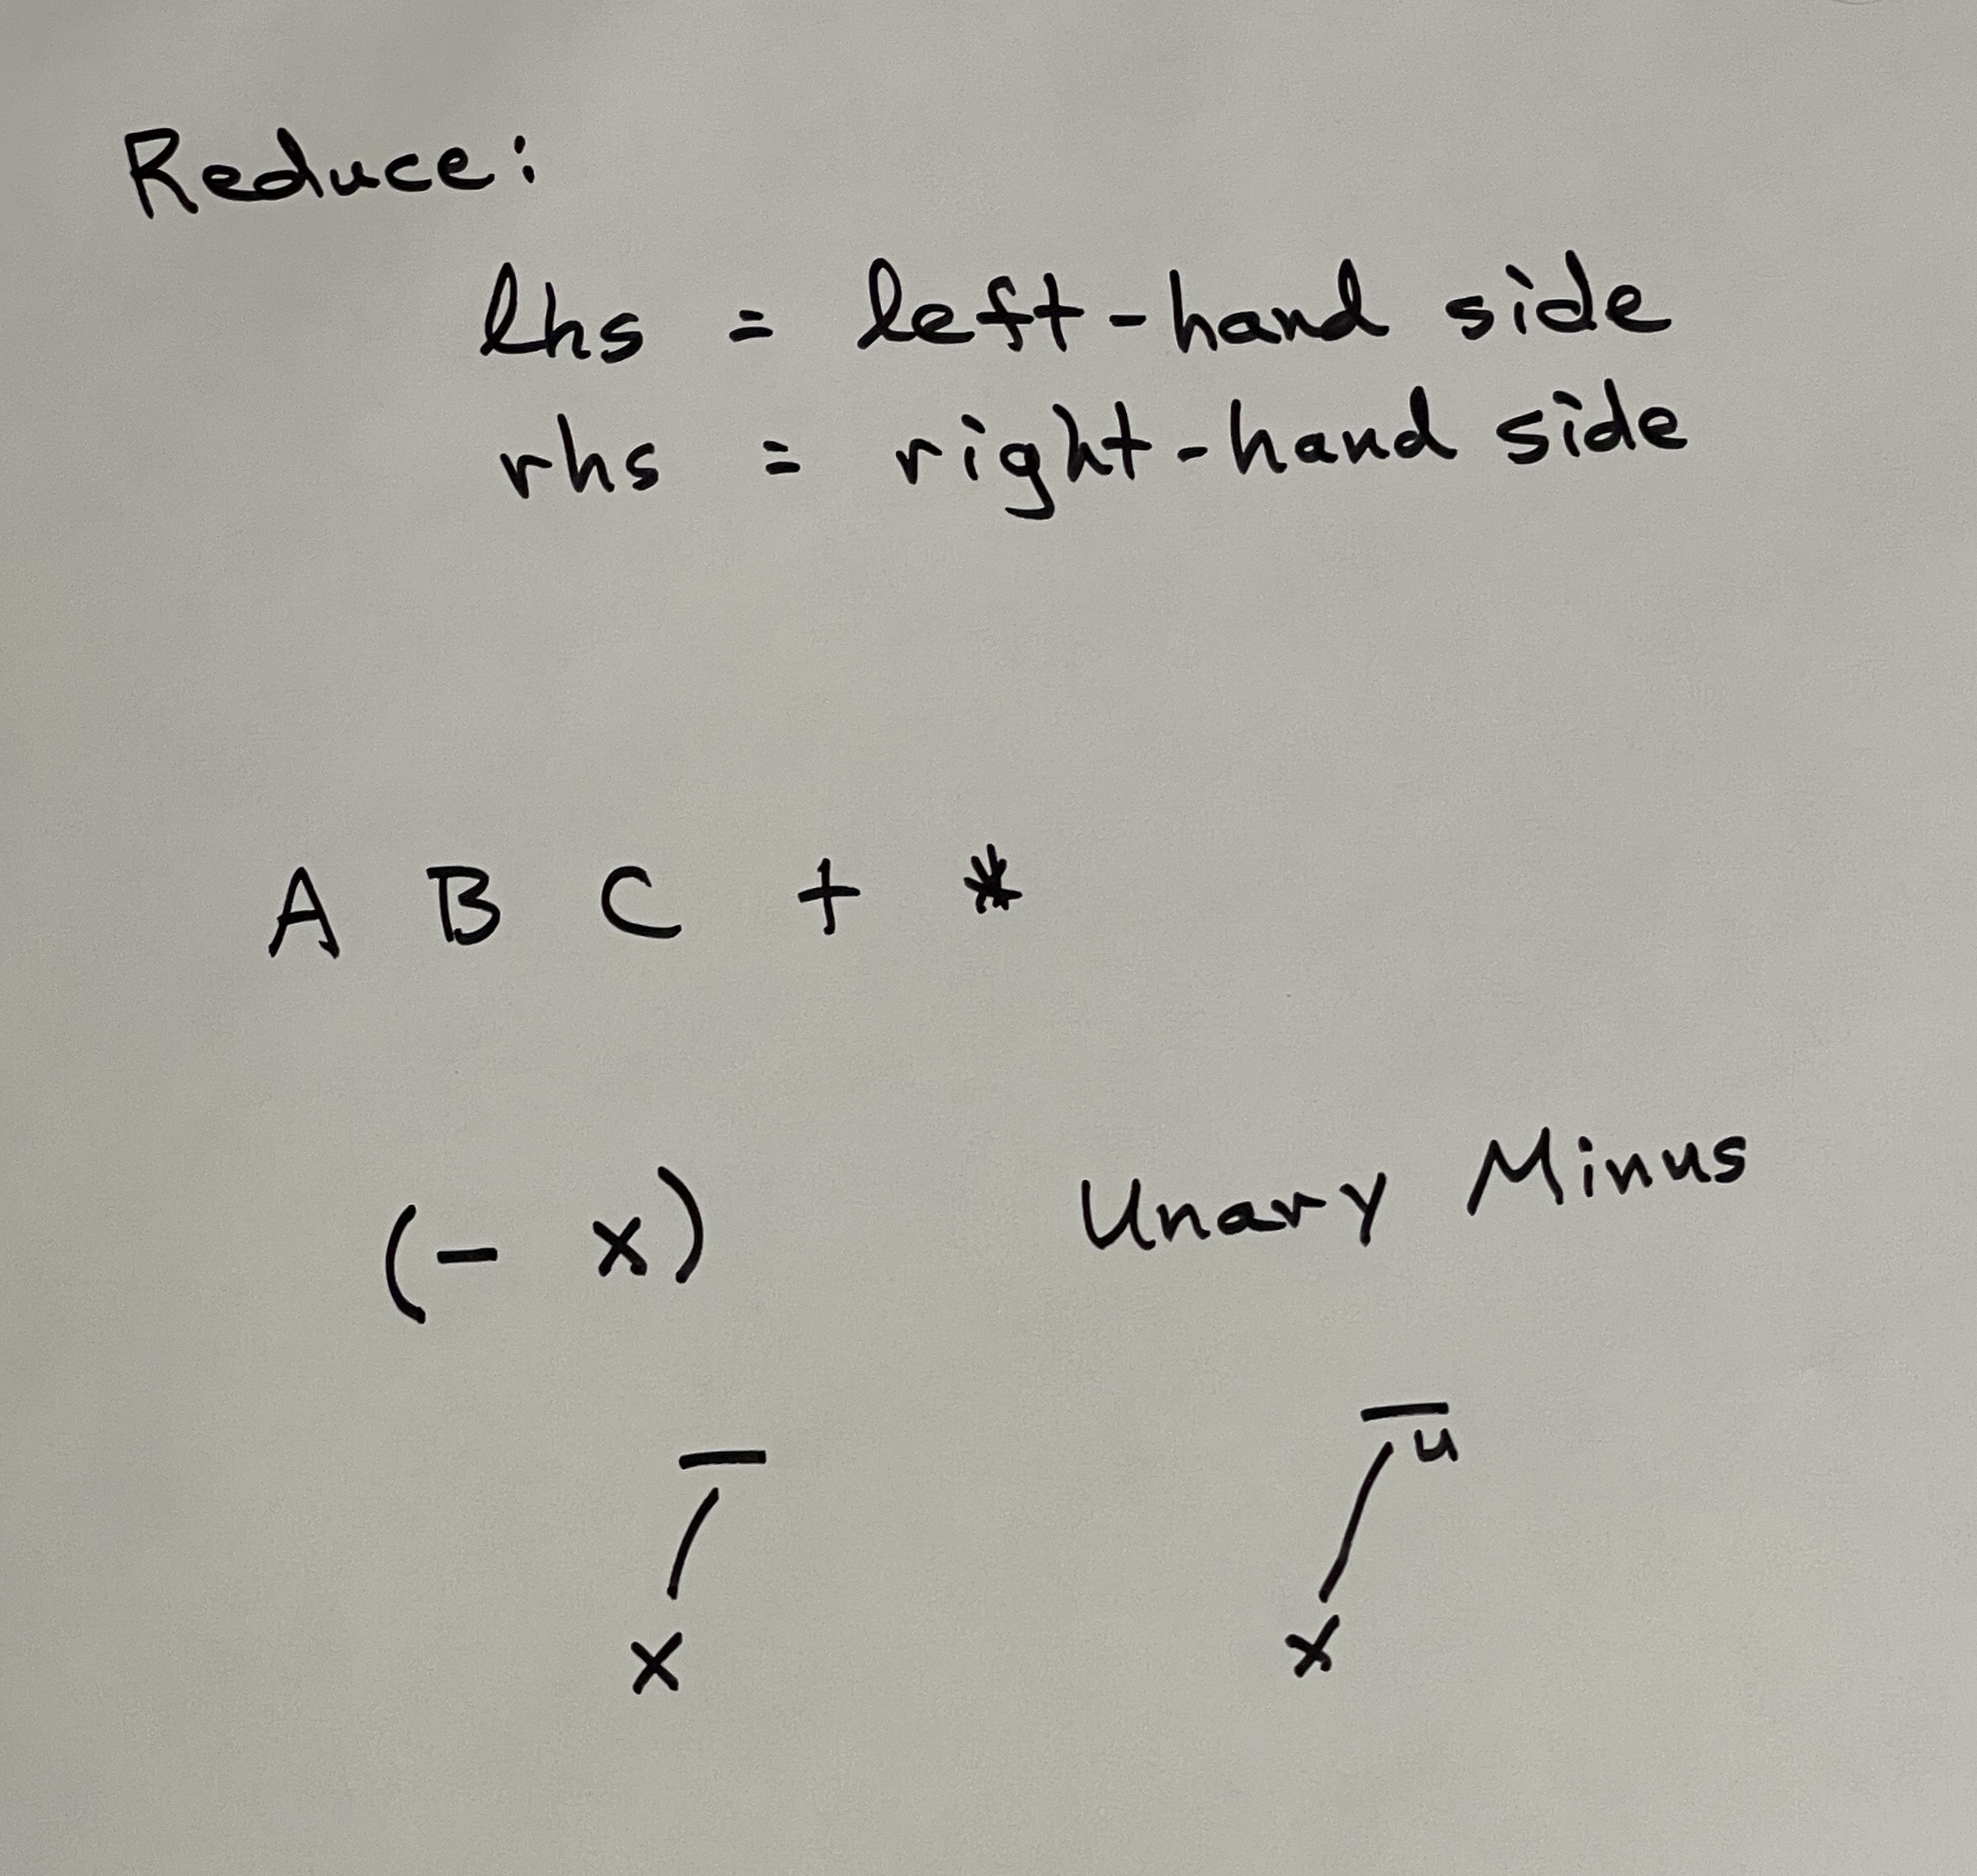 Reduce:
lhs = left-hand side
rhs = right-hand side
A B C + *
(- x) Unary Minus
− −u
x x